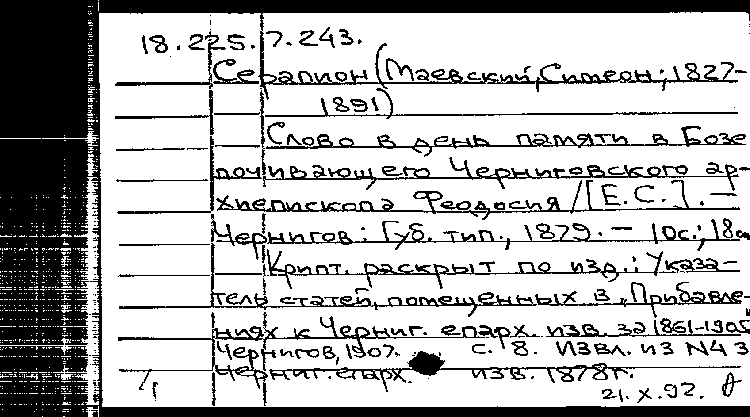 18.225.7.243.
Серапион (Маевский, Симеон; 1827-
1891)
Слово в день памяти в Бозе
почивающего Черниговского ар-
хиепископа Феодосия / [Е.С.]. —
Чернигов: Губ. тип., 1879. — 10с.; 18см
Крипт. раскрыт по изд.: Указа-
тель статей, помещенных в „Прибавле-
ниях к Черниг. епарх. изв. за 1861-1905
Чернигов, 1907. с. 8. Извл. из N4 3
Черниг. епарх. изв. 1878г.
21.X.92.